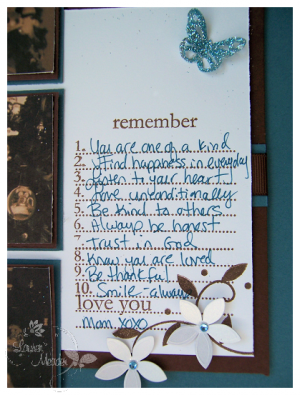 remember
1. You are one of a kind
2. Find happiness in everyday
3. Listen to your heart
4. Love unconditionally
5. Be kind to others
6. Always be honest
7. Trust in God
8. Know you are loved
9. Be thankful
10. Smile always
love you
Mom xoxo
Lauren Meader